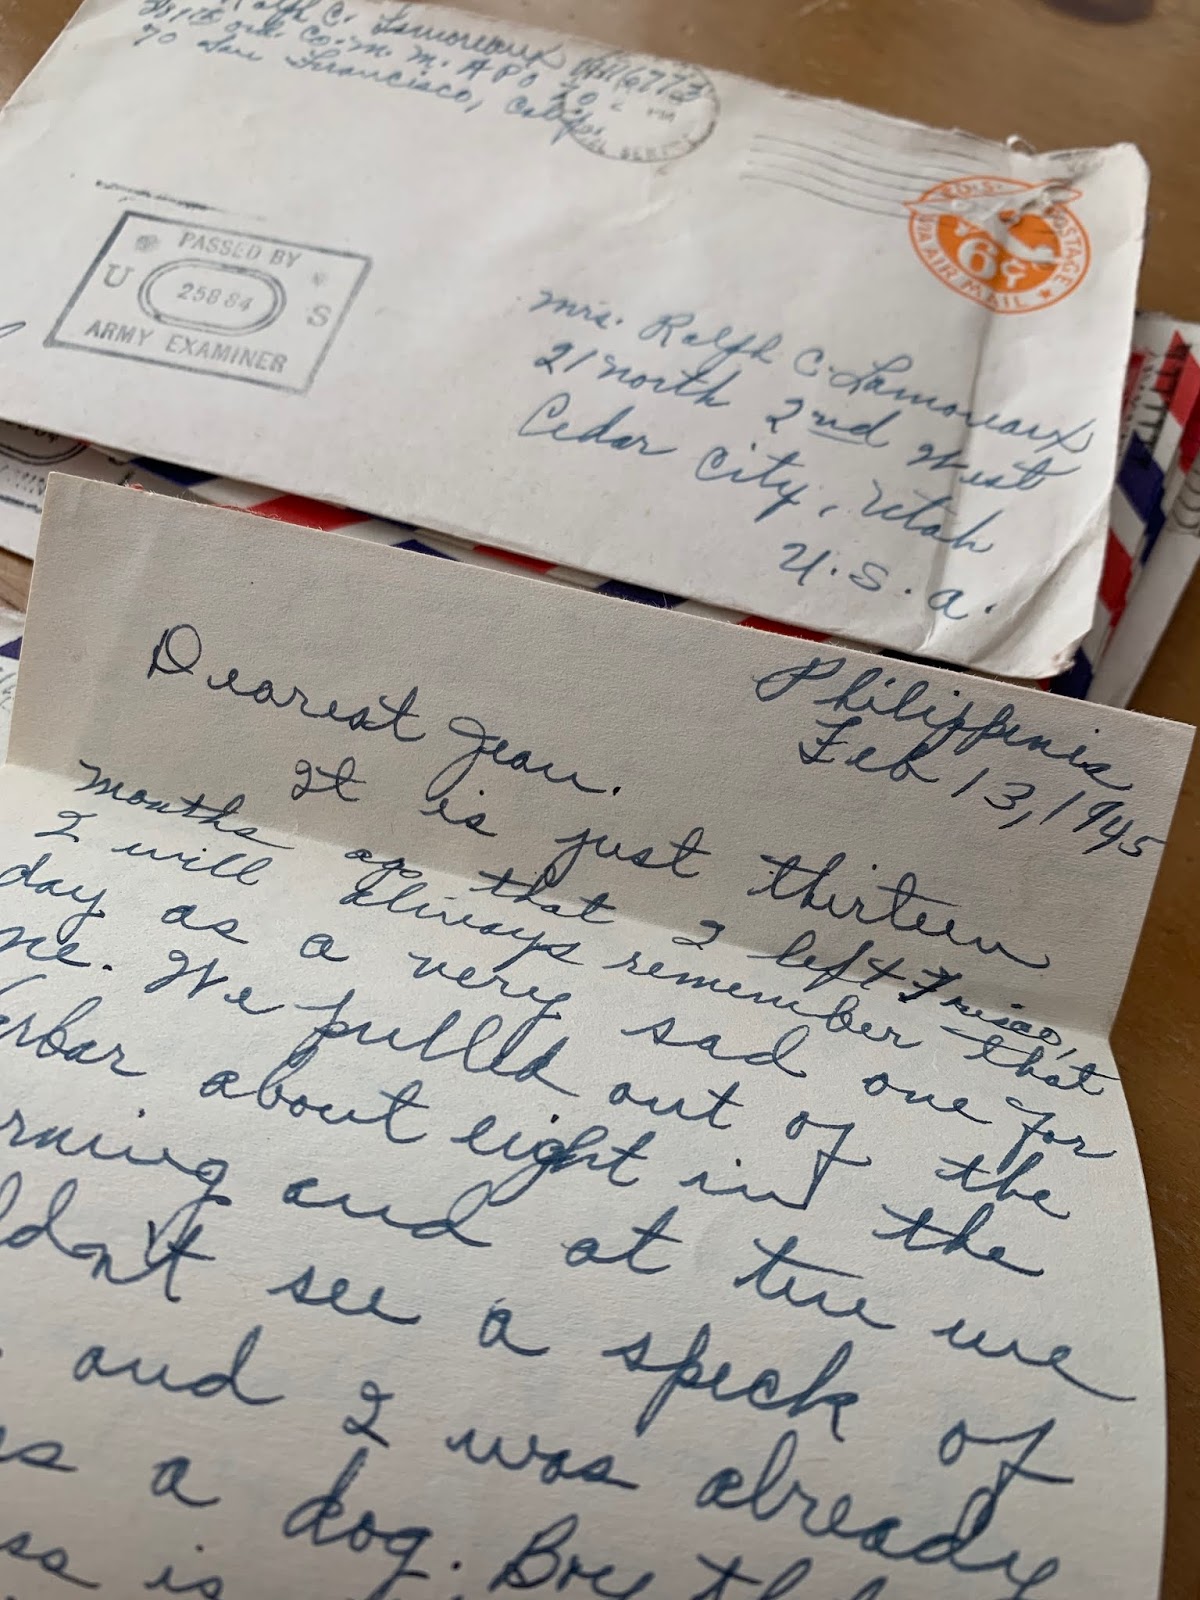 Ralph C. Lamoreaux
Ord. Co. M. M. APO 70
70 San Francisco, Calif.
U.S. POSTAGE
6¢
VIA AIR MAIL
PASSED BY
U 25884 S
ARMY EXAMINER
Mrs. Ralph C. Lamoreaux
21 North 2nd West
Cedar City, Utah
U.S.A.
Philippines
Feb 13, 1945
Dearest Jean.
It is just thirteen
months ago that I left Frisco,
I will always remember that
day as a very sad one for
me. We pulled out of the
about eight in the
and at ten we
see a speck of
and I was already
as a dog. Boy
is